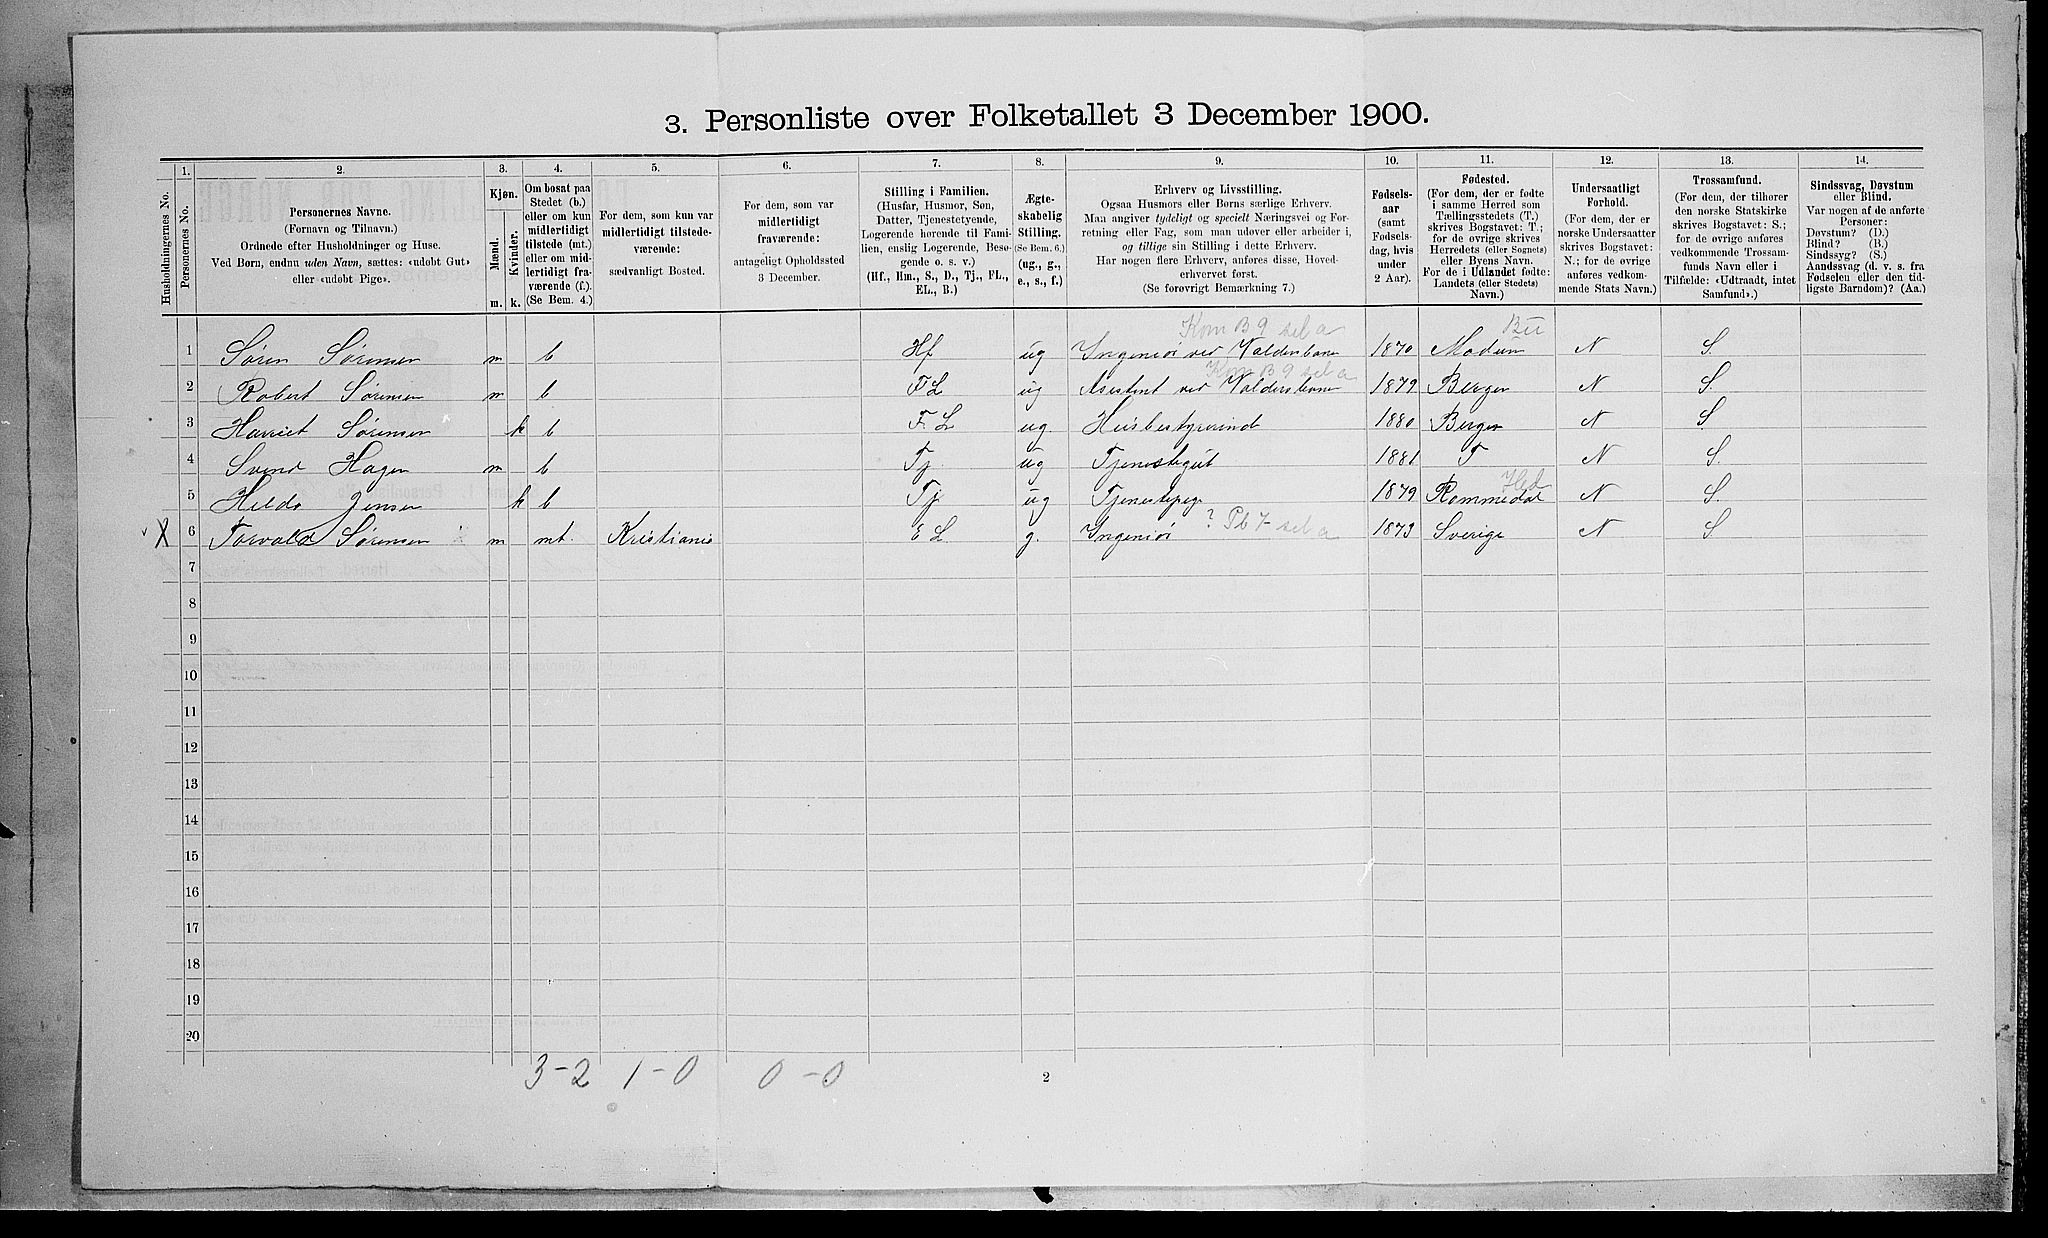 3. Personliste over Folketallet 3 December 1900.
1. 2. 3. 4. 5. 6. 7. 8. 9. 10. 11. 12. 13. 14.
Husholdningernes No.
Personernes No.
Personernes Navne.
(Fornavn og Tilnavn.)
Ordnede efter Husholdninger og Huse.
Ved Børn, endnu uden Navn, sættes: «udøbt Gut»
eller «udøbt Pige».
Kjøn.
Mænd.
Kvinder.
m. k.
Om bosat paa
Stedet (b.)
eller om kun
midlertidigt
tilstede (mt.)
eller om mid-
lertidigt fra-
værende (f.).
(Se Bem. 4.)
For dem, som kun var
midlertidigt tilstede-
værende:
sædvanligt Bosted.
For dem, som var
midlertidigt
fraværende:
antageligt Opholdssted
3 December.
Stilling i Familien.
(Husfar, Husmor, Søn,
Datter, Tjenestetyende,
Logerende hørende til Fami-
lien, enslig Logerende, Besø-
gende o. s. v.)
(Hf., Hm., S., D., Tj., FL.,
EL., B.)
Ægte-
skabelig
Stilling.
(Se Bem. 6.)
(ug., g.,
e., s., f.)
Erhverv og Livsstilling.
Ogsaa Husmors eller Børns særlige Erhverv.
Man angiver tydeligt og specielt Næringsvei og For-
retning eller Fag, som man udøver eller arbeider i,
og tillige sin Stilling i dette Erhverv.
Har nogen flere Erhverv, anføres disse, Hoved-
erhvervet først.
(Se forøvrigt Bemærkning 7.)
Fødsels-
aar
(samt
Fødsels-
dag, hvis
under
2 Aar).
Fødested.
(For dem, der er fødte
i samme Herred som
Tællingsstedets (T.)
skrives Bogstavet: T.;
for de øvrige skrives
Herredets (eller Sognets)
eller Byens Navn.
For de i Udlandet fødte:
Landets (eller Stedets)
Navn.)
Undersaatligt
Forhold.
(For dem, der er
norske Undersaatter
skrives Bogstavet:
N.; for de øvrige
anføres vedkom-
mende Stats Navn.)
Trossamfund.
(For dem, der tilhører
den norske Statskirke
skrives Bogstavet: S.;
for de øvrige anføres
vedkommende Trossam-
funds Navn eller i
Tilfælde: «Udtraadt, intet
Samfund».)
Sindssvag, Døvstum
eller Blind.
Var nogen af de anførte
Personer:
Døvstum? (D.)
Blind? (B.)
Sindssyg? (S.)
Aandssvag (d. v. s. fra
Fødselen eller den tid-
ligste Barndom)? (Aa.)
Kom B 9 sel a Bu
1 Søren Sørensen m b Hf ug Ingeniør ved Valdersbane 1870 Modum N S.
Kom B 9 sel a
2 Robert Sørensen m b F L ug Assistent ved Valdersbane 1879 Bergen N S
3 Harriet Sørensen k b F. L ug. Husbestyrerinde 1880 Bergen N S
4 Svend Hagen m b Tj. ug Tjenestegut 1881 T N S.
Hed
5 Hilda Jensen k b Tj ug Tjenestepige 1879 Rommedal N S.
X 6 Torvald Sørensen m mt. Kristiania E L g. Ingeniør ? Pb 7 sel a 1873 Sverige N S
7
8
9
10
11
12
13
14
15
16
17
18
19
20
3-2 1-0 0-0
2